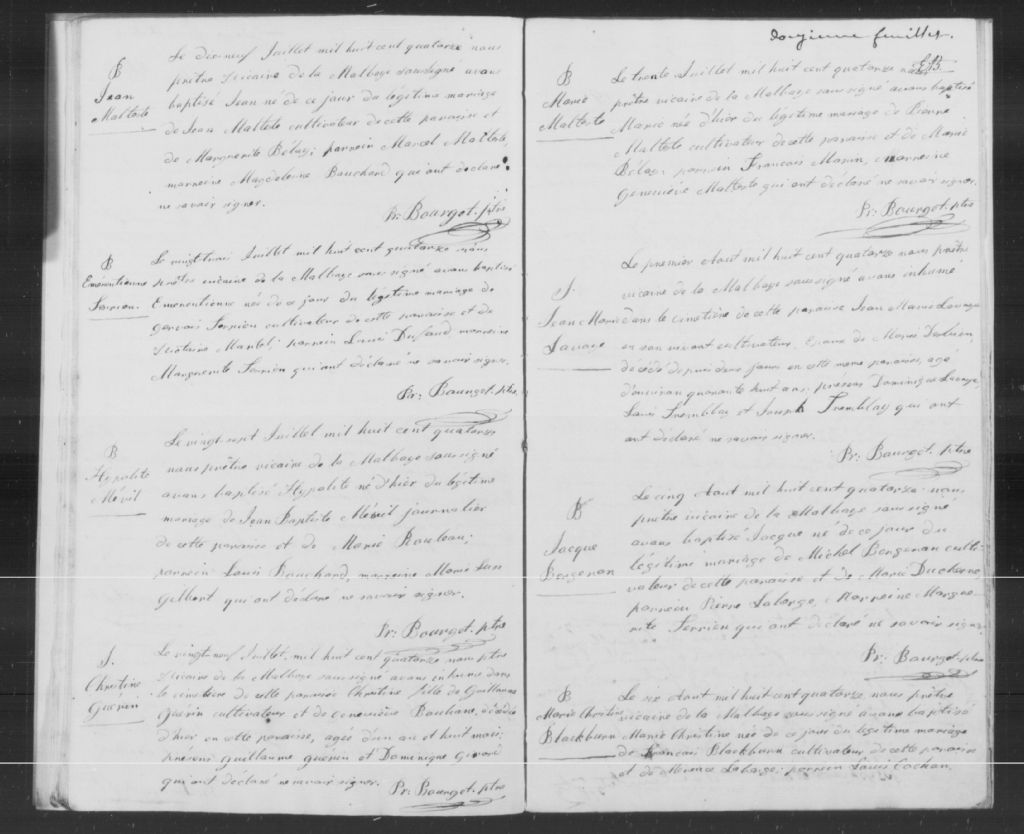 Le dix neuf Juillet mil huit cent quatorze nous
B
Jean
Malteste
prêtre vicaire de la Malbaye soussigné avons
baptisé Jean né de ce jour du légitime mariage
de Jean Malteste cultivateur de cette paroisse et
de Marguerite Bélay; parrein Marcel Malteste,
marreine Magdeleine Bouchard qui ont déclaré
ne savoir signer.
Pr: Bourget. ptre
Le vingt trois Juillet mil huit cent quatorze nous
B
Emérentienne
Terrien
prêtre vicaire de la Malbaye sous signé avons baptisé
Emerentienne née de ce jour du légitime mariage de
Gervais Terrien cultivateur de cette paroisse et de
parrein Louis marreine
Marguerite Terrien qui ont déclaré ne savoir signer.
Pr: Bourget. ptre
Le vingt sept Juillet mil huit cent quatorze
B
Hypolite
Mévil
nous prêtre vicaire de la Malbaye soussigné
avons baptisé Hypolite né d'hier du légitime
mariage de Jean Baptiste Mévil journalier
de cette paroisse et de Marie Rouleau;
parrein Louis Bouchard, marreine Marie
Gilbert qui ont déclaré ne savoir signer.
Pr: Bourget. ptre
S.
Christine
Guérin
Le vingt-neuf Juillet mil huit cent quatorze nous ptre
vicaire de la Malbaye soussigné avons inhumé dans
le cimetière de cette paroisse Christine fille de Guillaume
Guérin cultivateur et de Geneviève décédée
d'hier en cette paroisse, agée d'un an et huit mois;
présens Guillaume Guérin et Domenique
qui ont déclaré ne savoir signer.
Pr: Bourget. ptre
feuillet.
B
Marie
Malteste
Le trente Juillet mil huit cent quatorze nous
prêtre vicaire de la Malbaye sous signé avons baptisé
Marie née d'hier du légitime mariage de Pierre
Malteste cultivateur de cette paroisse et de Marie
Bélay; parrein François marreine
Geneviève Malteste qui ont déclaré ne savoir signer.
Pr: Bourget. ptre
Le premier Aout mil huit cent quatorze nous prêtre
S.
Jean Marie
Lavoye
vicaire de la Malbaye sous signé avons inhumé
dans le cimetière de cette paroisse Jean Marie Lavoye
en son vivant cultivateur, Epoux de Marie
décédé depuis deux jours en cette même paroisse, agé
d'environ quarante huit ans; présens Dominique Lavoye,
Louis Tremblay et Joseph Tremblay qui ont
ont déclaré ne savoir signer.
Pr: Bourget. ptre
Le cinq Aout mil huit cent quatorze nous
B
Jacque
Bergeron
prêtre vicaire de la Malbaye sous signé
avons baptisé Jacque né de ce jour du
légitime mariage de Michel Bergeron culti-
vateur de cette paroisse et de Marie Duchesne,
parrein Pierre Laforge, Marreine Margue-
rite Terrien qui ont déclaré ne savoir signer
Pr: Bourget. ptre
B
Marie Christine
Blackburn
Le six Aout mil huit cent quatorze, nous prêtre
vicaire de la Malbaye sous signé avons baptisé
Marie Christine née de ce jour du légitime mariage
de François Blackburn cultivateur de cette paroisse
et de parrein Louis